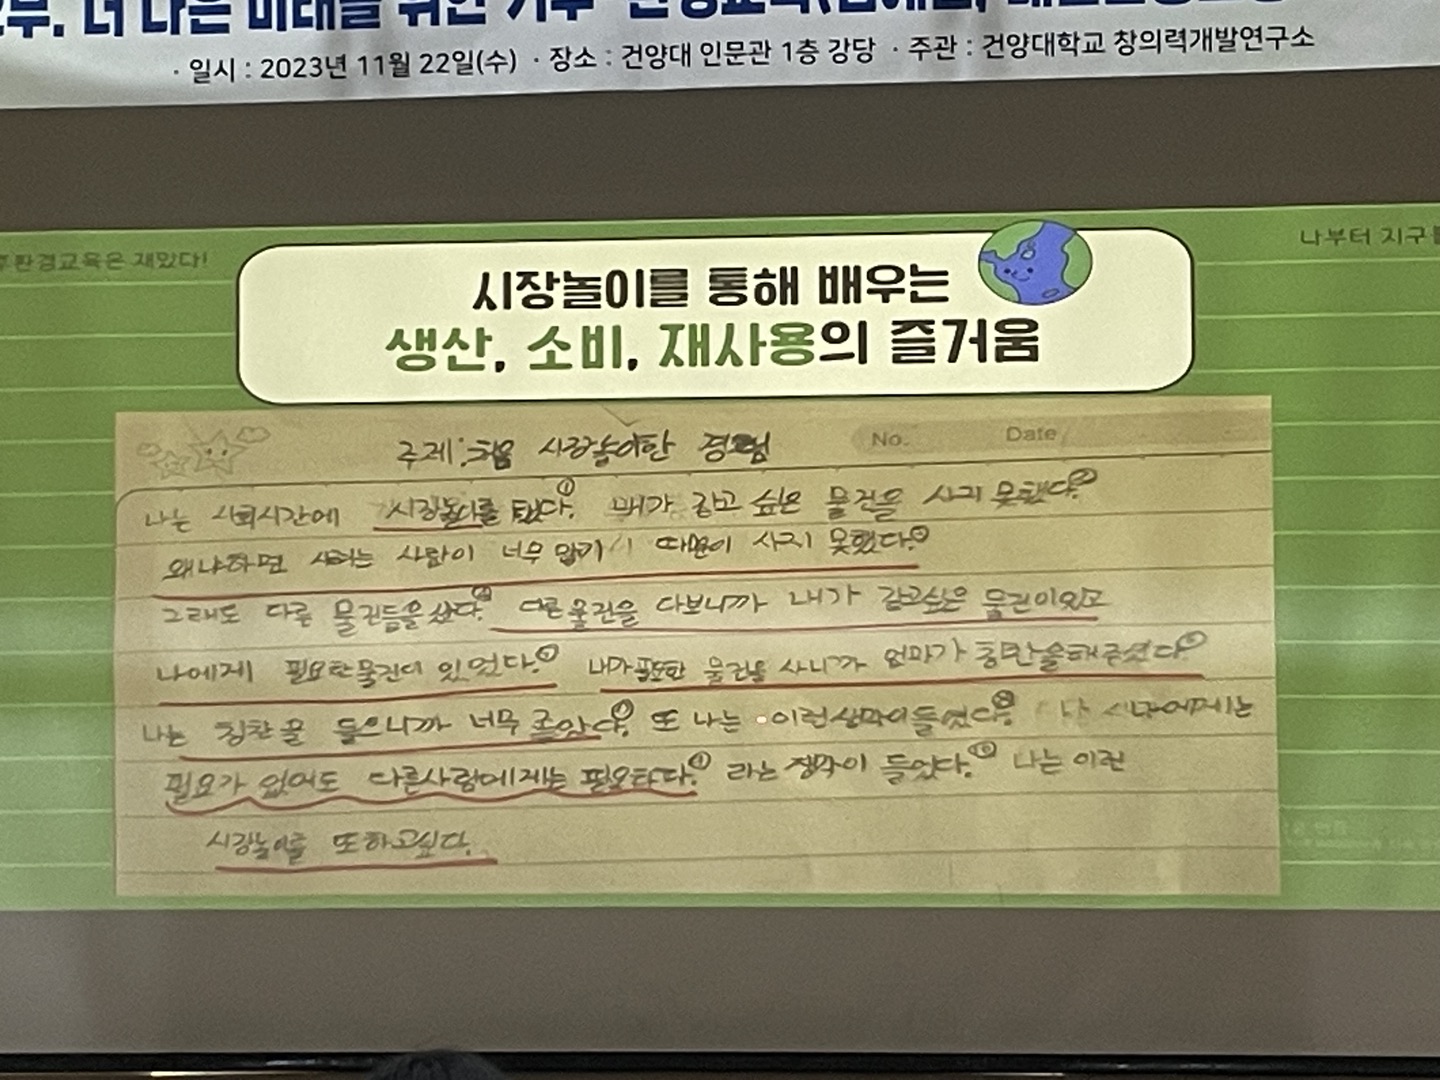 부. 더 나은 미래를 위한 기부
· 일시 : 2023년 11월 22일(수) · 장소 : 건양대 인문관 1층 강당 · 주관 : 건양대학교 창의력개발연구소
환경교육은 재밌다!
나부터 지구를
시장놀이를 통해 배우는
생산, 소비, 재사용의 즐거움
주제: 처음 시장놀이한 경험
No. Date
나는 사회시간에 시장놀이를 했다.① 내가 갖고 싶은 물건을 사지 못했다.②
왜냐하면 사려는 사람이 너무 많기 때문이 사지 못했다.③
그래도 다른 물건들을 샀다.④ 다른 물건을 다보니까 내가 갖고싶은 물건이있고
나에게 필요한물건이 있었다.⑤ 내가 필요한 물건을 사니까 엄마가 칭찬을해주셨다.⑥
나는 칭찬을 들으니까 너무 좋았다. 또 나는 이런생각이들었다. 나에게는
필요가 없어도 다른사람에게는 필요하다. 라는 생각이 들었다.⑩ 나는 이런
시장놀이를 또하고싶다.